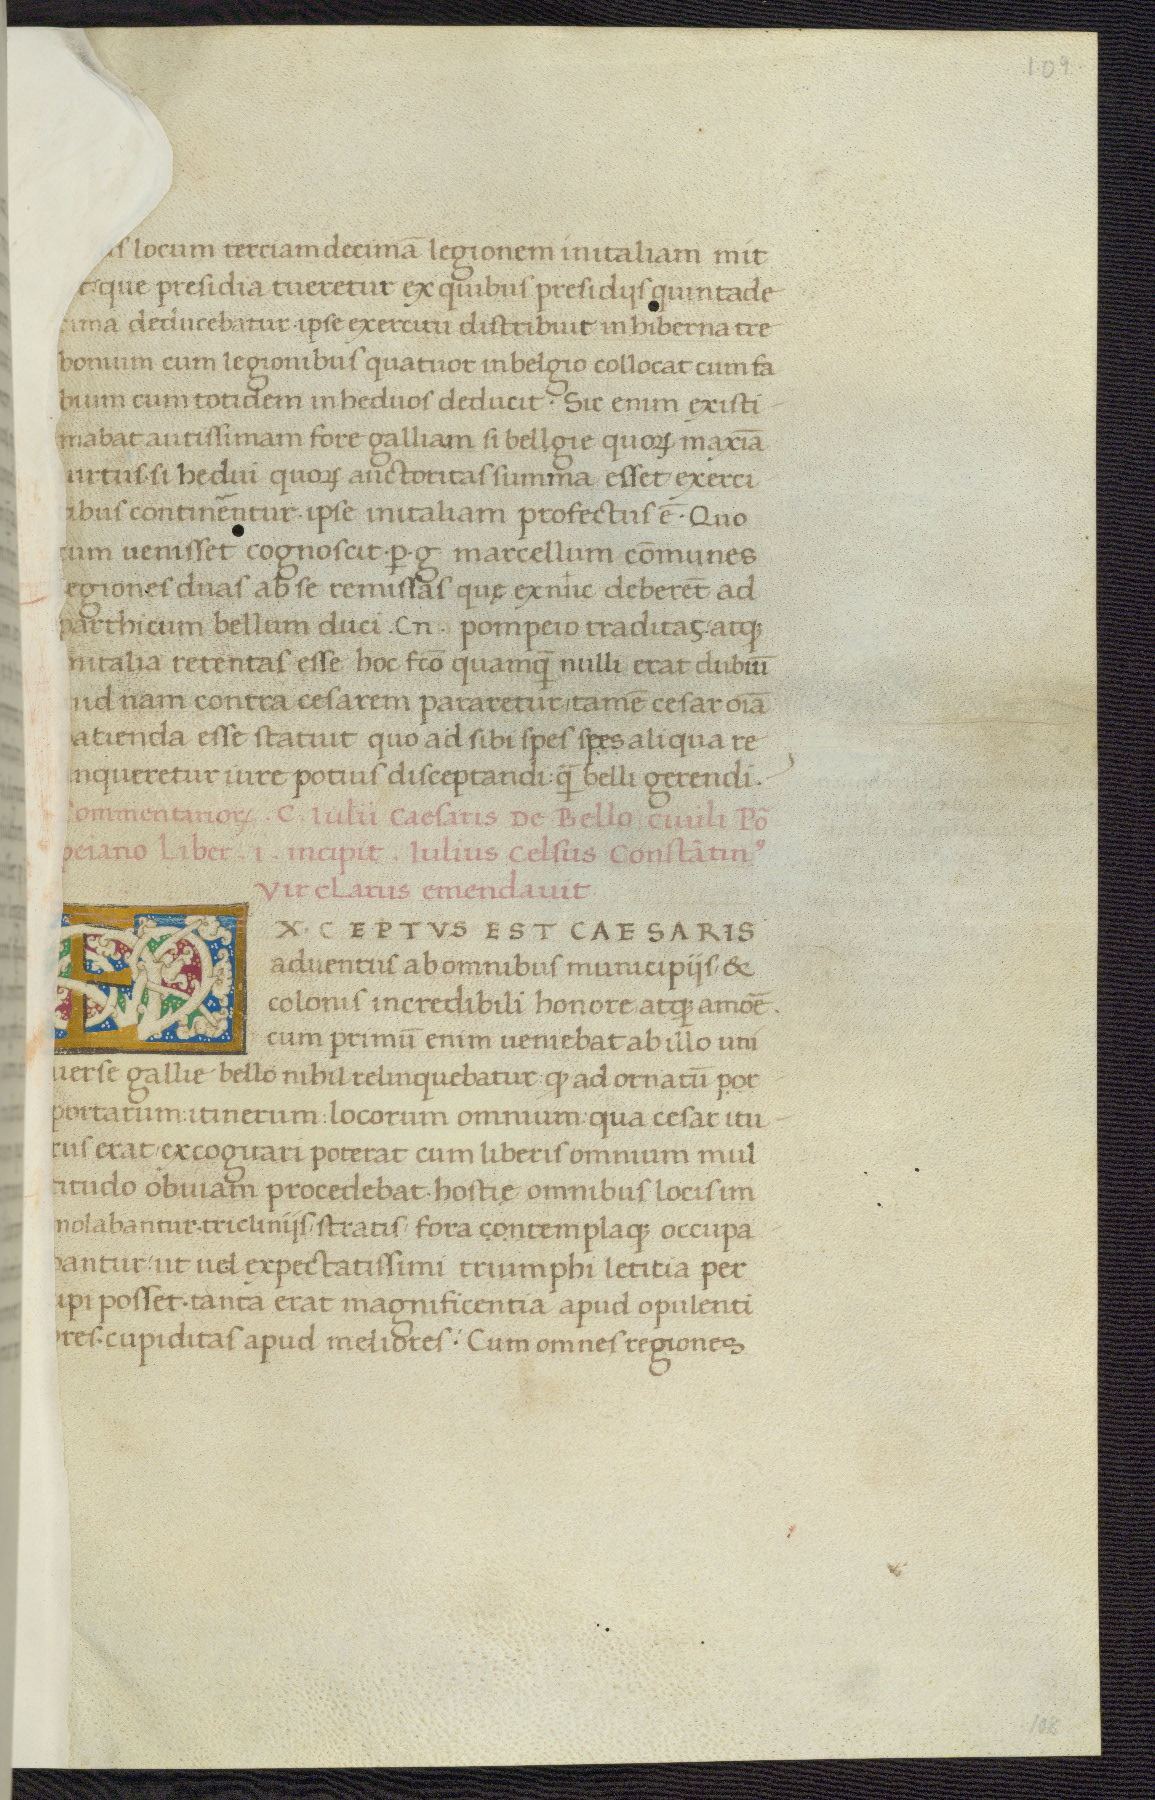 109
locum terciamdecimā legionem initaliam mit
que presidia tueretur ex quibus presidijs quintade
cima deducebatur. ipse exercitū distribuit in hiberna tre
bonium cum legionibus quatuor in belgio collocat cum fa
bium cum totidem in heduos deducit. Sic enim existi
mabat tutissimam fore galliam si bellgie quoꝝ maxīa
uirtus. si hedui quoꝝ auctoritas summa esset exerci
tibus continerentur. ipse initaliam profectus ē. Quo
cum uenisset cognoscit. p. g marcellum cōmunes
legiones duas ab se remissas quę ex nūc deberēt ad
parthicum bellum duci. Cn. pompeio traditas. atqꝫ
initalia retentas esse hoc fc̄o quamqꝫ nulli erat dubiū
quid nam contra cesarem pararetur. tamē cesar oīa
patienda esse statuit quo ad sibi spes spes aliqua re
linqueretur iure potius disceptandi: q̄ belli gerendi.
Commentarioꝝ. C. Iulii Caesaris De Bello Ciuili Pō
peiano Liber. i. incipit. Iulius Celsus Constātinꝰ
Vir cLarus emendauit
EX. CEPTVS EST CAESARIS
aduentus ab omnibus municipijs &
colonis incredibili honore atqꝫ amōe.
cum primū enim ueniebat ab illo uni
uerse gallie bello nihil relinquebatur. qꝫ ad ornatū por
portarum: itinerum: locorum omnium: qua cesar itu
rus erat excogitari poterat cum liberis omnium mul
titudo obuiam procedebat. hostię omnibus locis im
molabantur. tricliniis stratis fora contemplaqꝫ occupa
bantur ut uel expectatissimi triumphi letitia per
cipi posset. tanta erat magnificentia apud opulenti
ores. cupiditas apud meliores. Cum omnes regiones
108